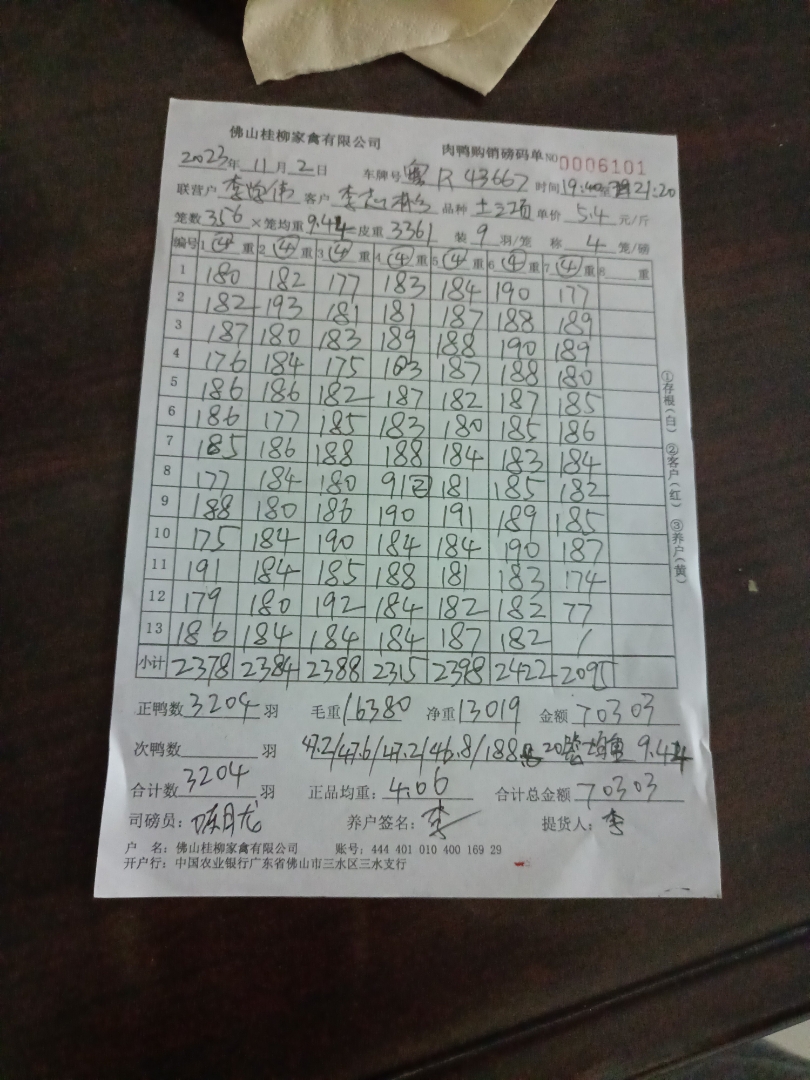 佛山桂柳家禽有限公司 肉鸭购销磅码单 NO 0006101
2023年 11月 2日 车牌号 粤R 43667 时间 19:40至 21:20
联营户 李 伟 客户 李 品种 土 单价 5.4 元/斤
笼数 356 ×笼均重 9.44 =皮重 3361 装 9 羽/笼 称 4 笼/磅
编号 1 ④ 重 2 ④ 重 3 ④ 重 4 ④ 重 5 ④ 重 6 ④ 重 7 ④ 重 8 重
1 180 182 177 183 184 190 177
2 182 193 181 181 187 188 189
3 187 180 183 189 188 190 189
4 176 184 175 183 187 188 180
5 186 186 182 187 182 187 185
6 186 177 185 183 180 185 186
7 185 186 188 188 184 183 184
8 177 184 180 91② 181 185 182
9 188 180 186 190 191 189 185
10 175 184 190 184 184 190 187
11 191 184 185 188 181 183 174
12 179 180 192 184 182 182 77
13 186 184 184 184 187 182 /
小计 2378 2384 2388 2315 2398 2422 2095
①存根(白) ②客户(红) ③养户(黄)
正鸭数 3204 羽 毛重 16380 净重 13019 金额 70303
次鸭数 羽 47.2/47.6/47.2/46.8/188.8 20 9.44
合计数 3204 羽 正品均重: 4.06 合计总金额 70303
司磅员: 陈月龙 养户签名: 李 提货人: 李
户 名: 佛山桂柳家禽有限公司 账号: 444 401 010 400 169 29
开户行: 中国农业银行广东省佛山市三水区三水支行